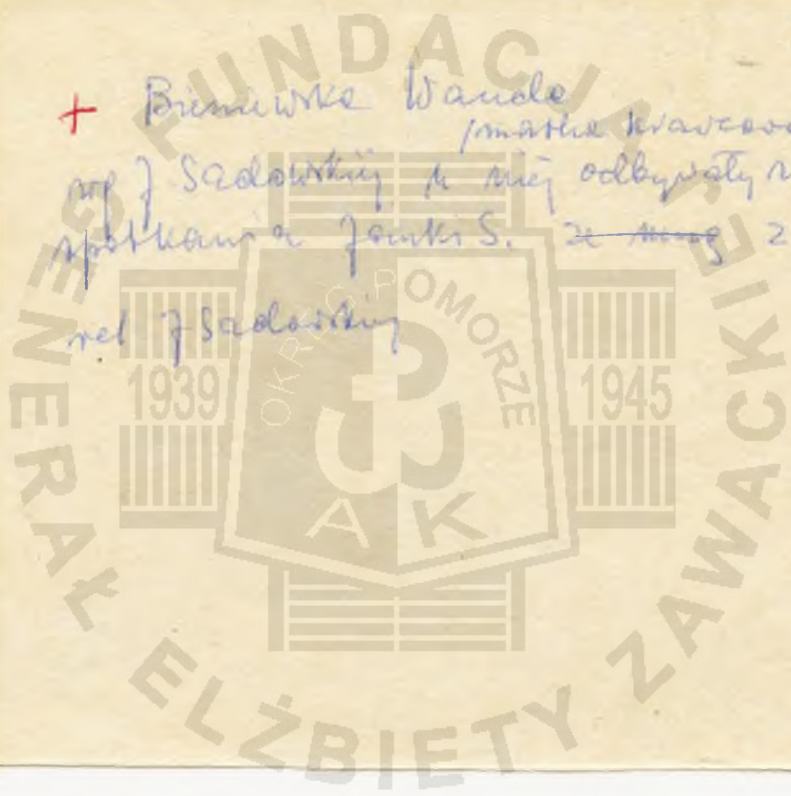 + Bieniewska Wanda
/matka krawcowa
wg J Sadowskiej u niej odbywały
spotkania Janki S. ze mną z
rel J Sadowskiej
FUNDACJA GENERAŁ ELŻBIETY ZAWACKIEJ
OKRĘG POMORZE
1939
1945
AK